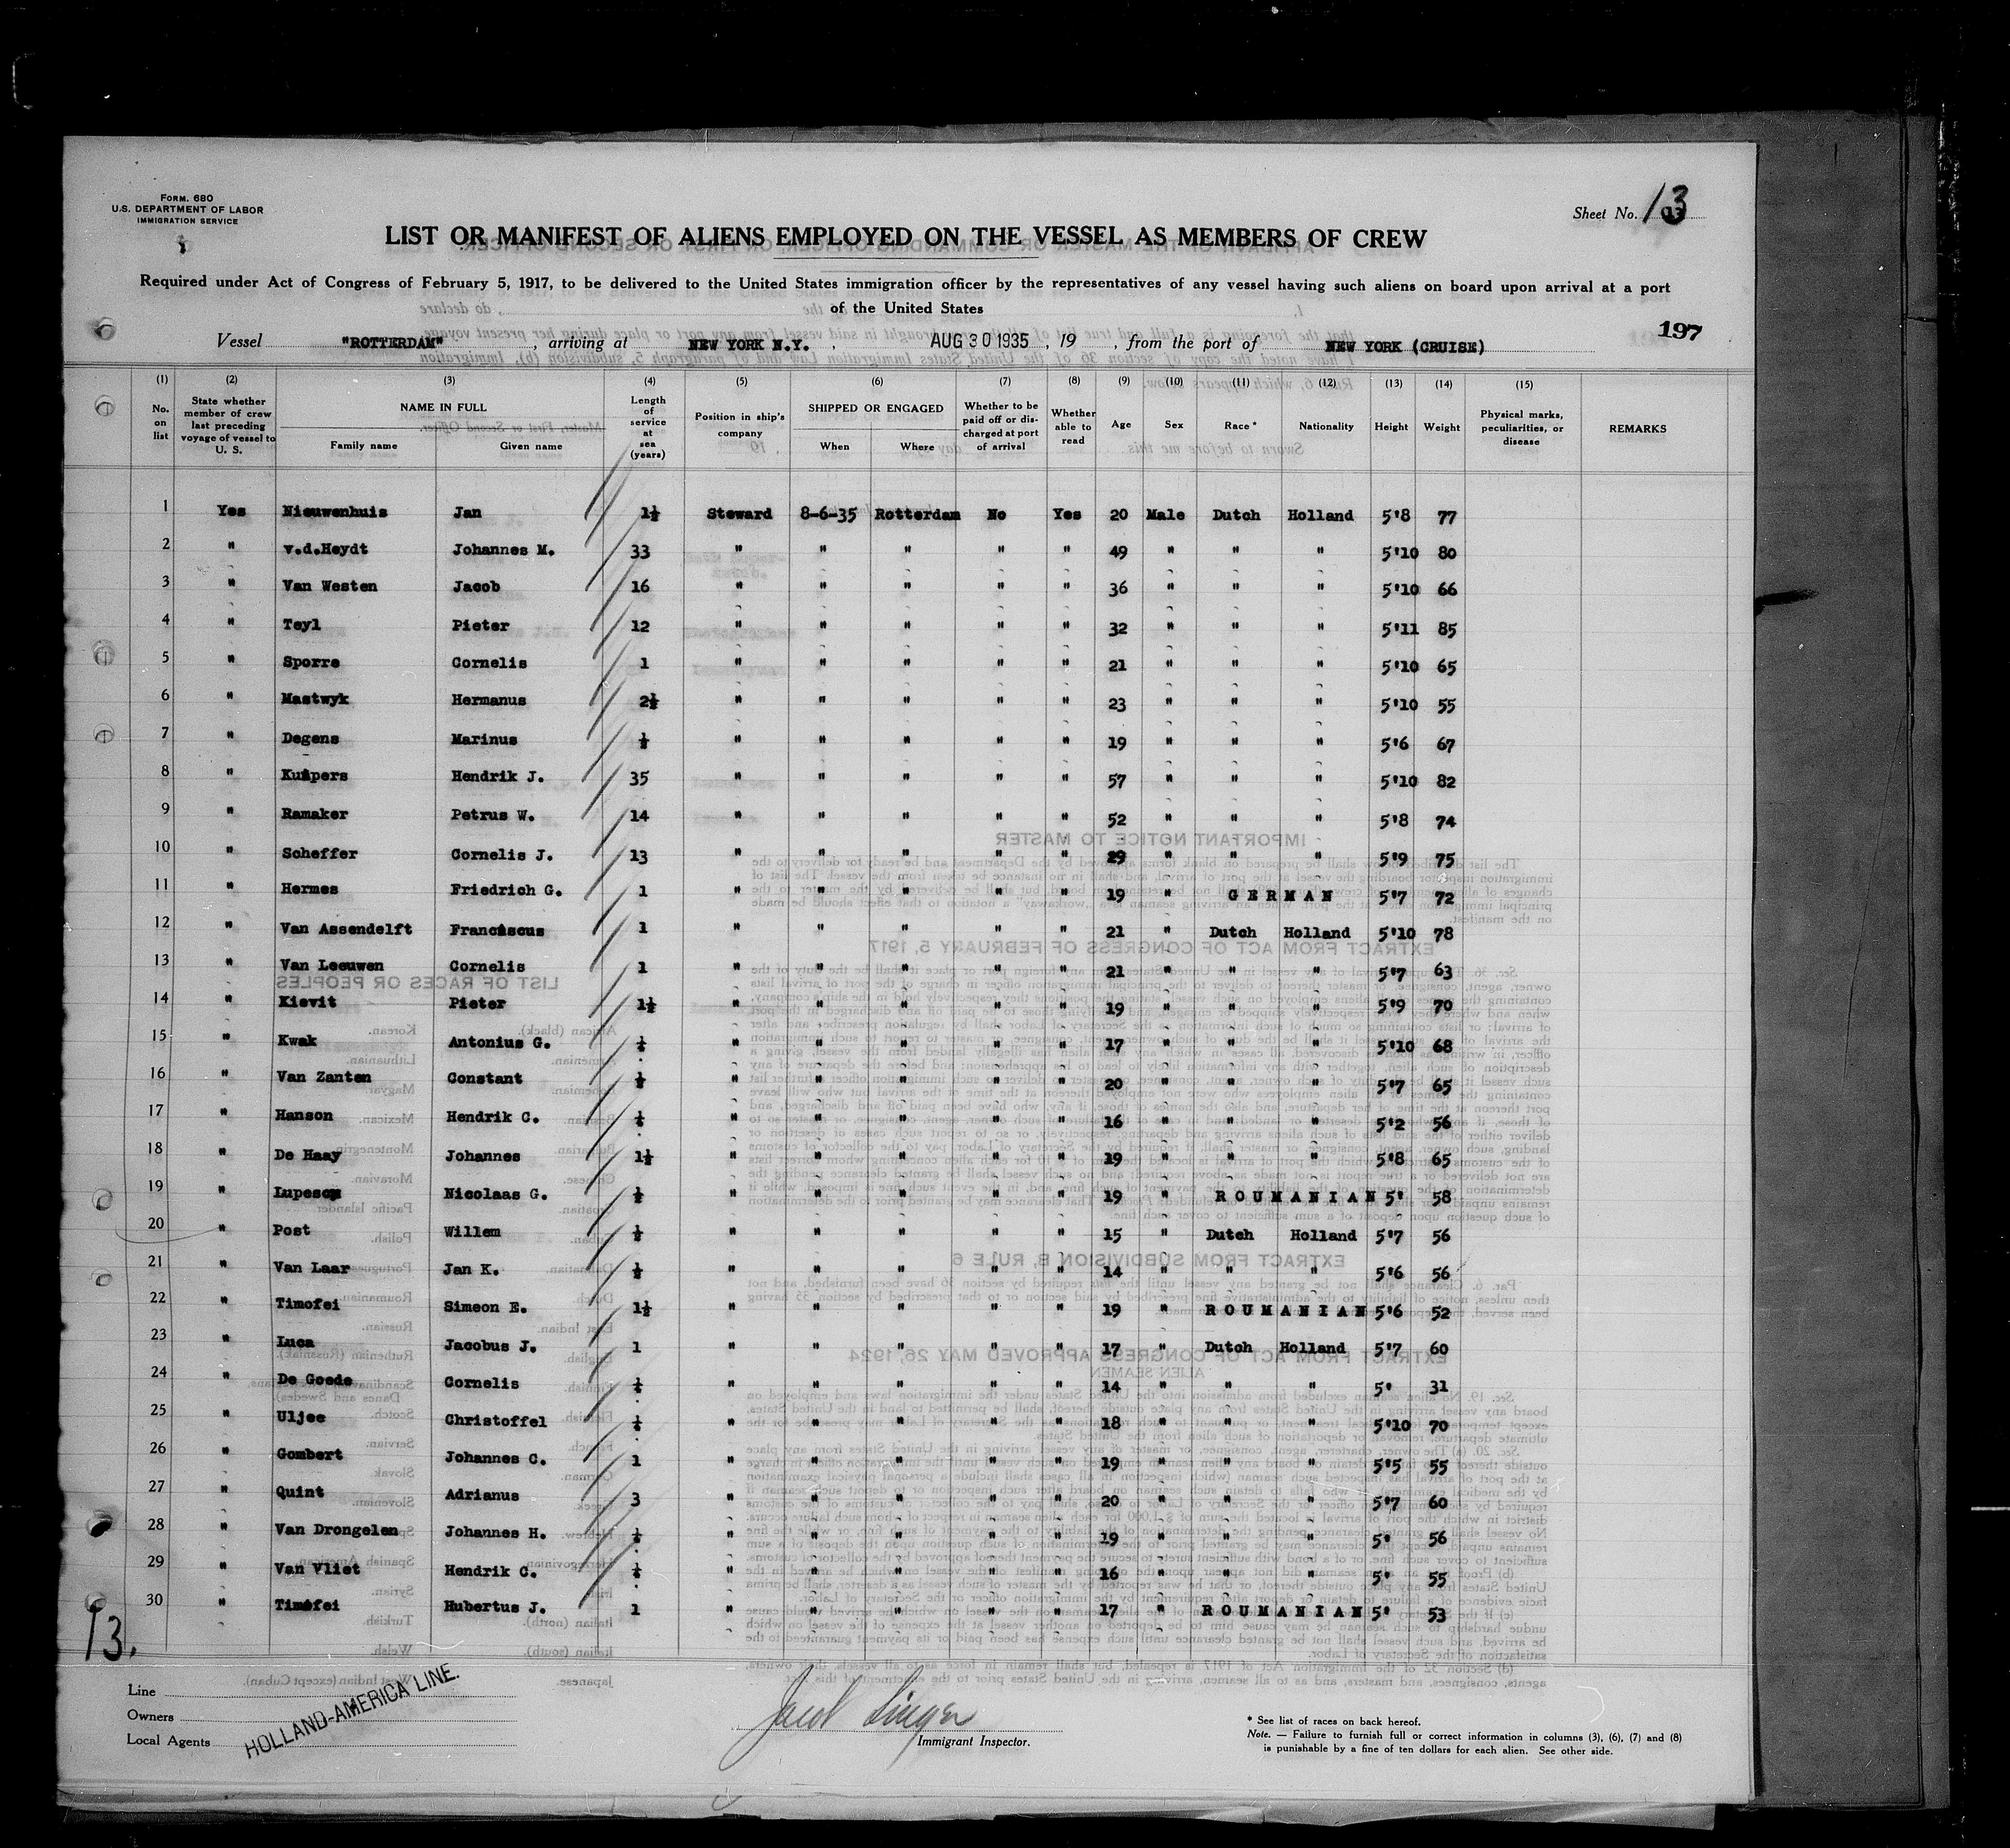 FORM. 680
U.S. DEPARTMENT OF LABOR
IMMIGRATION SERVICE
Sheet No. 13
LIST OR MANIFEST OF ALIENS EMPLOYED ON THE VESSEL AS MEMBERS OF CREW
Required under Act of Congress of February 5, 1917, to be delivered to the United States immigration officer by the representatives of any vessel having such aliens on board upon arrival at a port
of the United States
197
Vessel "ROTTERDAM", arriving at NEW YORK N.Y., AUG 30 1935, 19 , from the port of NEW YORK (CRUISE)
(1) (2) (3) (4) (5) (6) (7) (8) (9) (10) (11) (12) (13) (14) (15)
No. on list | State whether member of crew last preceding voyage of vessel to U. S. | NAME IN FULL Family name Given name | Length of service at sea (years) | Position in ship's company | SHIPPED OR ENGAGED When Where | Whether to be paid off or discharged at port of arrival | Whether able to read | Age | Sex | Race * | Nationality | Height | Weight | Physical marks, peculiarities, or disease | REMARKS
1 Yes Nieuwenhuis Jan 1½ Steward 8-6-35 Rotterdam No Yes 20 Male Dutch Holland 5'8 77
2 " v.d.Heydt Johannes M. 33 " " " " " 49 " " " 5'10 80
3 " Van Westen Jacob 16 " " " " " 36 " " " 5'10 66
4 " Teyl Pieter 12 " " " " " 32 " " " 5'11 85
5 " Sporre Cornelis 1 " " " " " 21 " " " 5'10 65
6 " Mastwyk Hermanus 2½ " " " " " 23 " " " 5'10 55
7 " Degens Marinus ½ " " " " " 19 " " " 5'6 67
8 " Kuipers Hendrik J. 35 " " " " " 57 " " " 5'10 82
9 " Ramaker Petrus W. 14 " " " " " 52 " " " 5'8 74
10 " Scheffer Cornelis J. 13 " " " " " 29 " " " 5'9 75
11 " Hermes Friedrich G. 1 " " " " " 19 " GERMAN 5'7 72
12 " Van Assendelft Franciscus 1 " " " " " 21 " Dutch Holland 5'10 78
13 " Van Leeuwen Cornelis 1 " " " " " 21 " " " 5'7 63
14 " Kievit Pieter 1½ " " " " " 19 " " " 5'9 70
15 " Kwak Antonius G. ½ " " " " " 17 " " " 5'10 68
16 " Van Zanten Constant ½ " " " " " 20 " " " 5'7 65
17 " Hanson Hendrik C. ½ " " " " " 16 " " " 5'2 56
18 " De Haay Johannes 1½ " " " " " 19 " " " 5'8 65
19 " Lupescu Nicolaas G. ½ " " " " " 19 " ROUMANIAN 5' 58
20 " Post Willem ½ " " " " " 15 " Dutch Holland 5'7 56
21 " Van Laar Jan K. ½ " " " " " 14 " " " 5'6 56
22 " Timofei Simeon E. 1½ " " " " " 19 " ROUMANIAN 5'6 52
23 " Luca Jacobus J. 1 " " " " " 17 " Dutch Holland 5'7 60
24 " De Goede Cornelis ½ " " " " " 14 " " " 5' 31
25 " Uljee Christoffel ½ " " " " " 18 " " " 5'10 70
26 " Gombert Johannes C. 1 " " " " " 19 " " " 5'5 55
27 " Quint Adrianus 3 " " " " " 20 " " " 5'7 60
28 " Van Drongelen Johannes H. ½ " " " " " 19 " " " 5' 56
29 " Van Vliet Hendrik C. ½ " " " " " 16 " " " 5' 55
30 " Timofei Hubertus J. 1 " " " " " 17 " ROUMANIAN 5' 53
13.
Line
Owners
Local Agents
HOLLAND-AMERICA LINE.
Jacob Singer
Immigrant Inspector.
* See list of races on back hereof.
Note. — Failure to furnish full or correct information in columns (3), (6), (7) and (8)
is punishable by a fine of ten dollars for each alien. See other side.